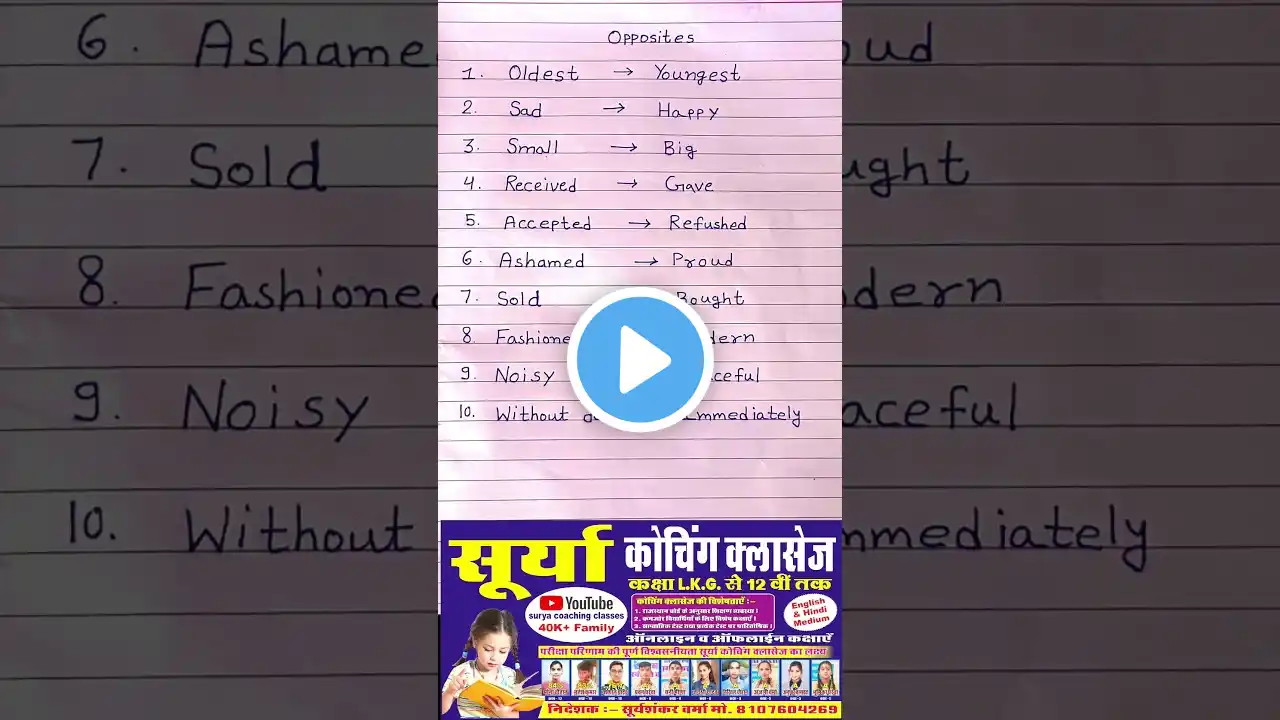 Opposites
1. Oldest → Youngest
2. Sad → Happy
3. Small → Big
4. Received → Gave
5. Accepted → Refushed
6. Ashamed → Proud
7. Sold Bought
8. Fashione dern
9. Noisy ceful
10. Without mmediately
6. Ashame oud
7. Sold ught
8. Fashione dern
9. Noisy aceful
10. Without mmediately
सूर्या कोचिंग क्लासेज
कक्षा L.K.G. से 12 वीं तक
YouTube
surya coaching classes
40K+ Family
कोचिंग क्लासेज की विशेषताएँ :-
1. राजस्थान बोर्ड के अनुसार शिक्षण व्यवस्था ।
2. कमजोर विद्यार्थियों के लिए विशेष कक्षाएँ ।
3. साप्ताहिक टेस्ट तथा प्रत्येक टेस्ट पर पारितोषिक ।
English
& Hindi
Medium
ऑनलाइन व ऑफलाईन कक्षाएँ
परीक्षा परिणाम की पूर्ण विश्वसनीयता सूर्या कोचिंग क्लासेज का लक्ष्य
निदेशक :- सूर्यशंकर वर्मा मो. 8107604269